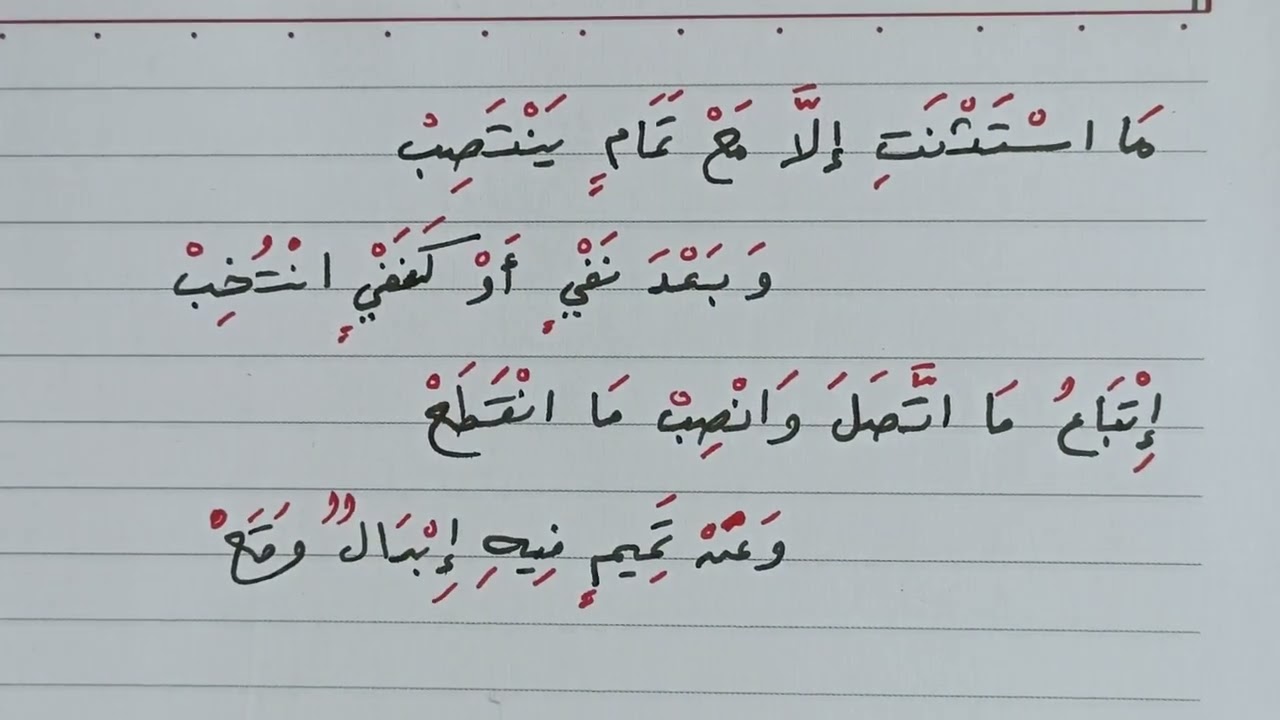 مَا اسْتَثْنَتِ إلَّا مَعْ تَمَامٍ يَنْتَصِبْ
وَبَعْدَ نَفْيٍ أَوْ كَنَفَيْيٍ انْتُخِبْ
إِتْبَاعُ مَا اتَّصَلَ وَانْصِبْ مَا انْقَطَعْ
وَعَنْ تَمِيمٍ فِيهِ إِبْدَالٌ وَقَعْ